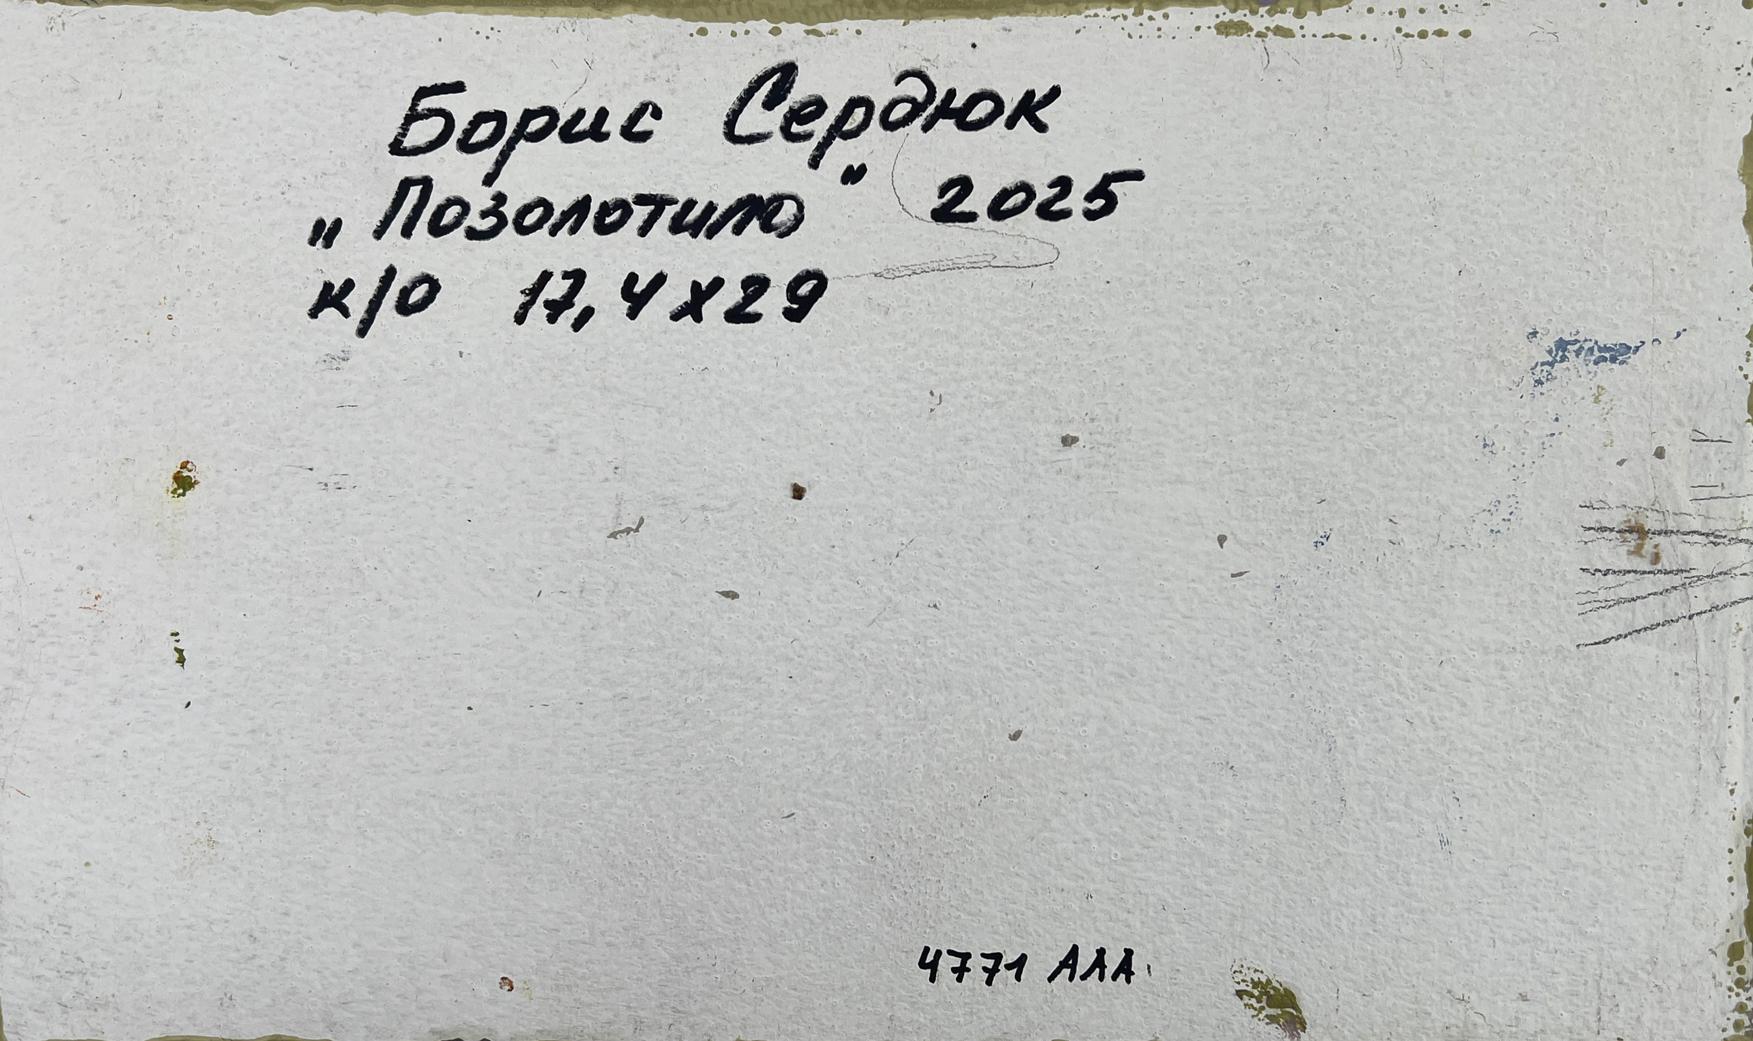 Борис Сердюк
„Позолотило" 2025
к/о 17,4х29
4771 ААА